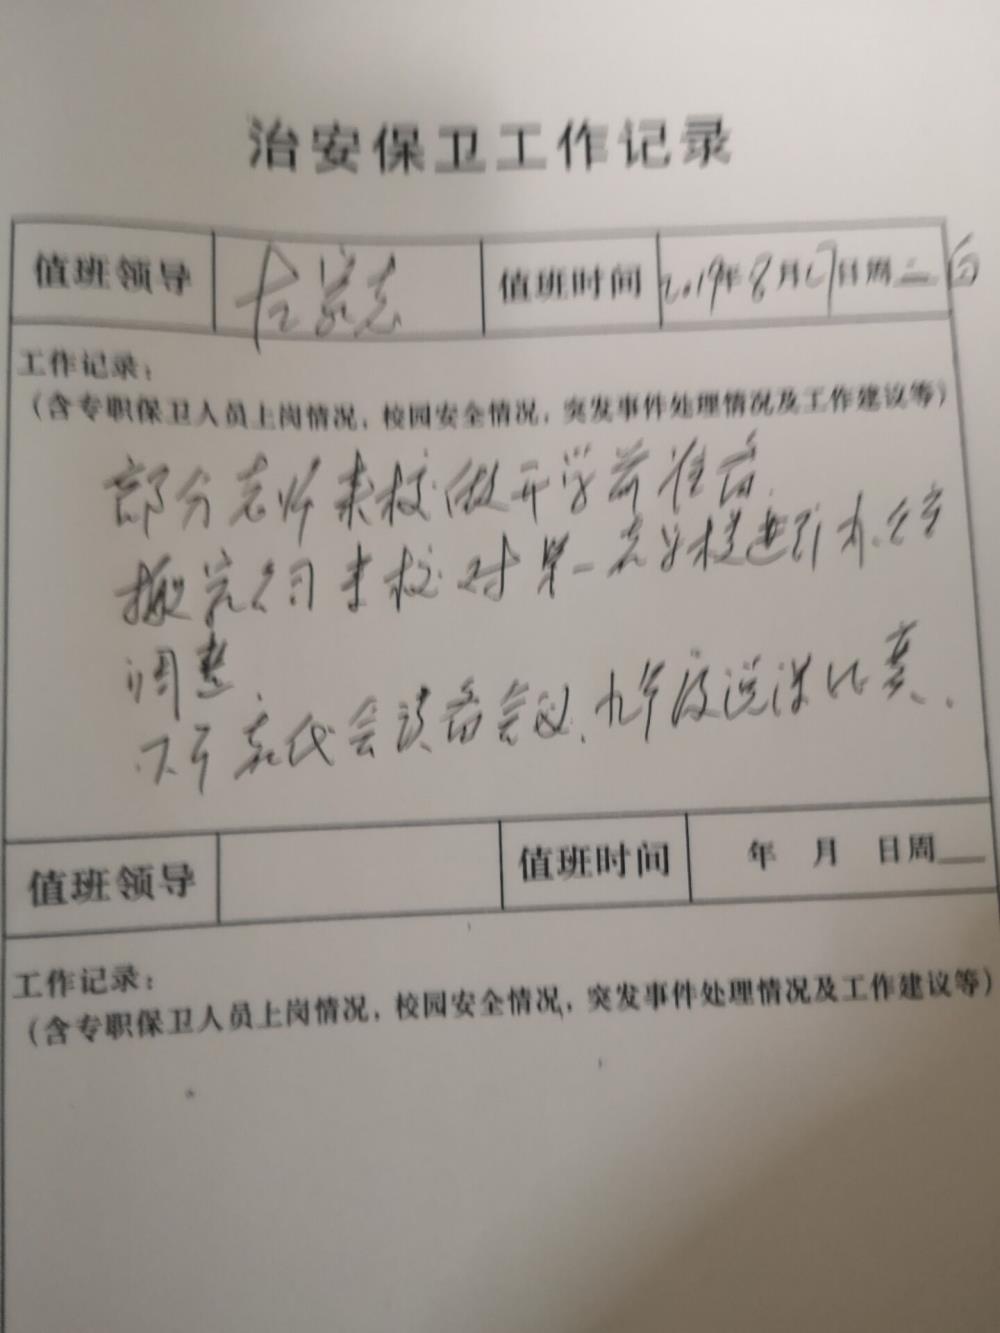 治安保卫工作记录
值班领导 值班时间 2019年8月27日周二 白
工作记录：
（含专职保卫人员上岗情况，校园安全情况，突发事件处理情况及工作建议等）
部分老师来校做开学前准备.
搬家公司来校对第一 进行办公室
调整.
下午教代会预备会议.九年段说课比赛.
值班领导 值班时间 年 月 日周
工作记录：
（含专职保卫人员上岗情况，校园安全情况，突发事件处理情况及工作建议等）